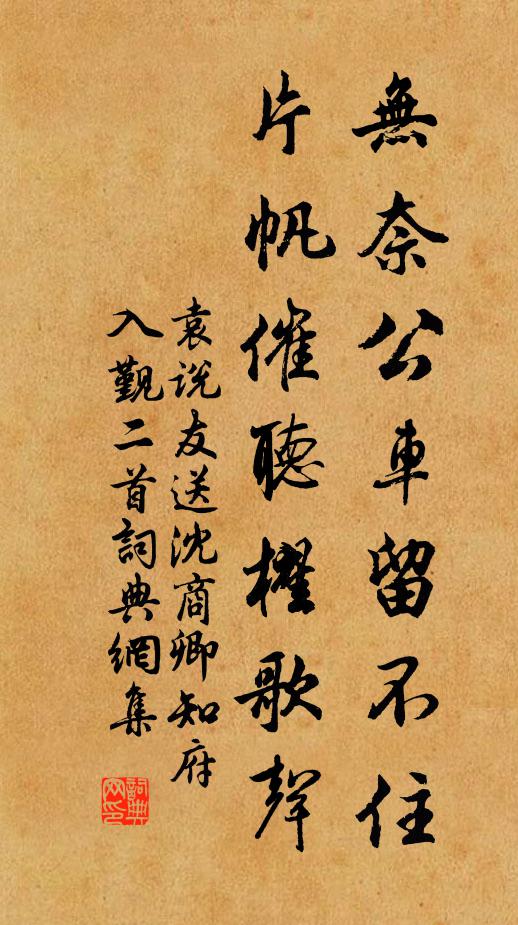 無奈公車留不住
片帆催聽櫂歌聲
袁说友送沈商卿知府
入觀二首詞典網集
詞典網印